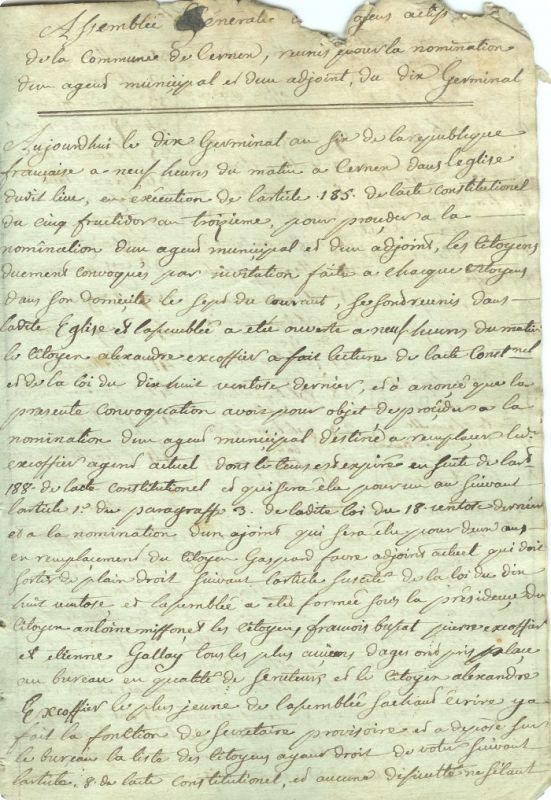 Assemblée Générale des Citoyens actifs
de la Commune de Cernex, reunis pour la nomination
d'un agent municipal et d'un adjoint, du dix Germinal
Aujourdhui le dix Germinal an six de la republique
française a neuf heures du matin a Cernex dans l'eglise
dudit lieu, en exécution de larticle 185. de lacte constitutionel
du cinq fructidor an troizieme, pour procéder a la
nomination d'un agent municipal et d'un adjoint, les Citoyens
duement convoqués par invitation faite a chaque Citoyens
dans son domicile le sept du courant, se sont reunis dans
ladite Eglise et lassemblée a etée ouverte a neuf heures du matin
le Citoyen alexandre excoffier a fait lecture de lacte Constnel
et de la loi du dix huit ventose dernier, et a anoncé que la
presente Convoquation avoit pour objet de procéder a la
nomination d'un agent municipal déstiné a remplacer led.
excoffier agent actuel dont le tems est expiré en suite de lart
188. de lacte constitutionel et qui sera élu pour un an suivant
larticle 1.er du paragraff 3. de ladite loi du 18. ventose dernier
et a la nomination d'un ajoint qui sera élu pour deux ans
en remplacement du Citoyen Gaspard favre adjoint actuel qui doit
sortir de plain droit suivant larticle suscité de la loi du dix
huit ventose, et lassemblée a été formée sous la présidence du
Citoyen antoine et les Citoyens francois busat pierre excoffier
et etienne Gallay tous les plus anciens dages ont pris place
au bureau en qualité de scruteurs et le Citoyen alexandre
Excoffier le plus jeune de lassemblée sachant écrire y a
fait la fonction de secretaire provisoire et a deposé sur
le bureau la liste des Citoyens ayant droit de voter suivant
larticle 8 de lacte constitutionel, et aucune dificulté ne sélant